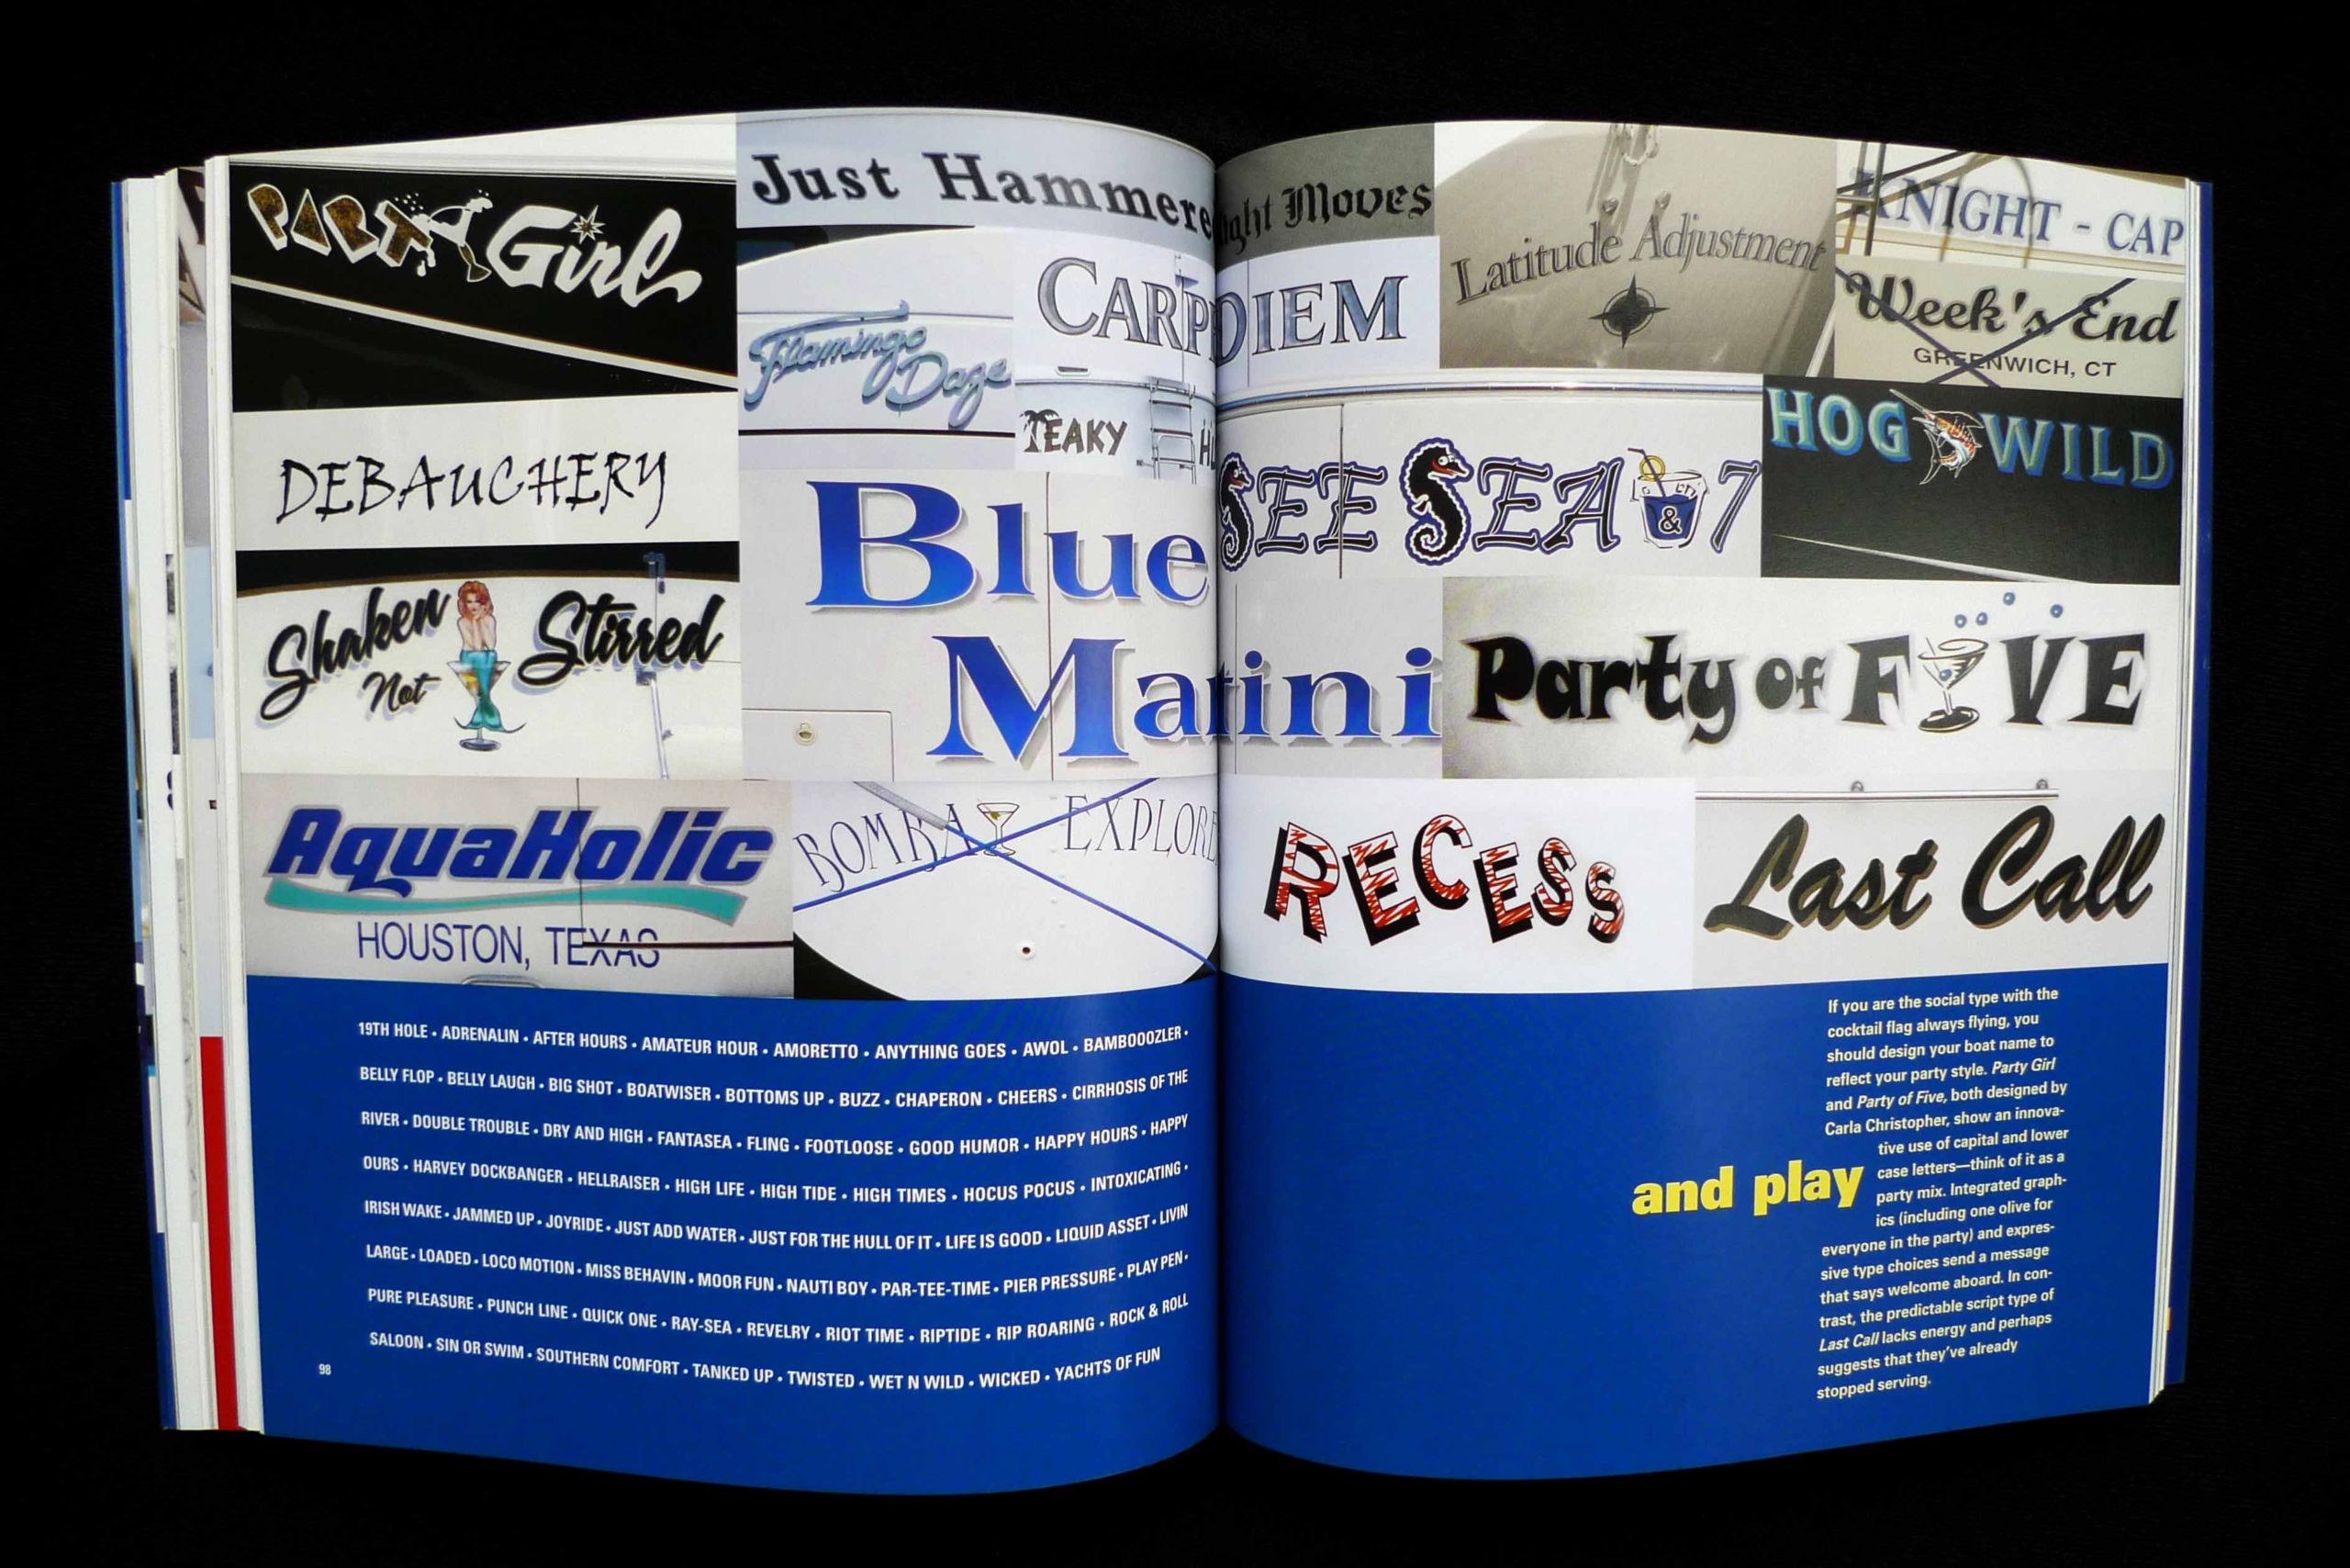 PARTY Girl
Just Hammere
ight Moves
Latitude Adjustment
KNIGHT - CAP
Week's End
GREENWICH, CT
Flamingo
Daze
CARP DIEM
TEAKY
DEBAUCHERY
SEE SEA & 7
HOG WILD
Blue
Matini
Shaken
Not
Stirred
Party of FIVE
AquaHolic
HOUSTON, TEXAS
BOMBA EXPLORE
RECESS
Last Call
19TH HOLE • ADRENALIN • AFTER HOURS • AMATEUR HOUR • AMORETTO • ANYTHING GOES • AWOL • BAMBOOOZLER •
BELLY FLOP • BELLY LAUGH • BIG SHOT • BOATWISER • BOTTOMS UP • BUZZ • CHAPERON • CHEERS • CIRRHOSIS OF THE
RIVER • DOUBLE TROUBLE • DRY AND HIGH • FANTASEA • FLING • FOOTLOOSE • GOOD HUMOR • HAPPY HOURS • HAPPY
OURS • HARVEY DOCKBANGER • HELLRAISER • HIGH LIFE • HIGH TIDE • HIGH TIMES • HOCUS POCUS • INTOXICATING •
IRISH WAKE • JAMMED UP • JOYRIDE • JUST ADD WATER • JUST FOR THE HULL OF IT • LIFE IS GOOD • LIQUID ASSET • LIVIN
LARGE • LOADED • LOCO MOTION • MISS BEHAVIN • MOOR FUN • NAUTI BOY • PAR-TEE-TIME • PIER PRESSURE • PLAY PEN •
PURE PLEASURE • PUNCH LINE • QUICK ONE • RAY-SEA • REVELRY • RIOT TIME • RIPTIDE • RIP ROARING • ROCK & ROLL
SALOON • SIN OR SWIM • SOUTHERN COMFORT • TANKED UP • TWISTED • WET N WILD • WICKED • YACHTS OF FUN
98
and play
If you are the social type with the
cocktail flag always flying, you
should design your boat name to
reflect your party style. Party Girl
and Party of Five, both designed by
Carla Christopher, show an innova-
tive use of capital and lower
case letters—think of it as a
party mix. Integrated graph-
ics (including one olive for
everyone in the party) and expres-
sive type choices send a message
that says welcome aboard. In con-
trast, the predictable script type of
Last Call lacks energy and perhaps
suggests that they've already
stopped serving.